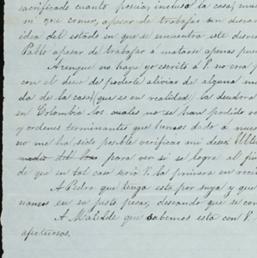 sacrificado cuanto poseía, incluso la casa, mue
ni que comer, apesar de trabajar sin descan
idea del estado en que se encuentra este desve
Pablo apesar de trabajar a matarse apenas pue
Aunque no haya yo escrito a P. no era p
con el deseo de poderle aliviar de alguna m
da de la casa (que es en realidad la deudora
en Colombia los cuales no se han perdido va
y ordenes terminantes que hemos dado a nuest
no me ha sido posible verificar mi deseo
para ver si se logra al fin
de que en tal caso sería P. la primera en reci
A Pedro que tenga esta por suya y que
mamos en su justo pesar, deseando que se con
A Matilde que sabemos está con P.
afectuosos.